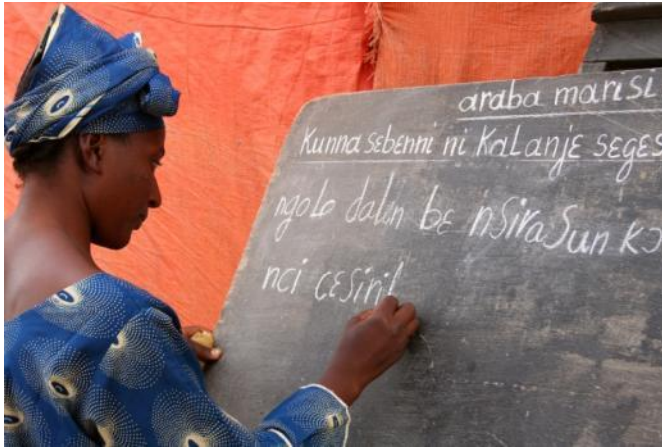 araba marisi
Kunna sebenni ni Kalanjɛ seges
ngolo dalen bɛ nsirasun kɔ
nci cɛsiri!